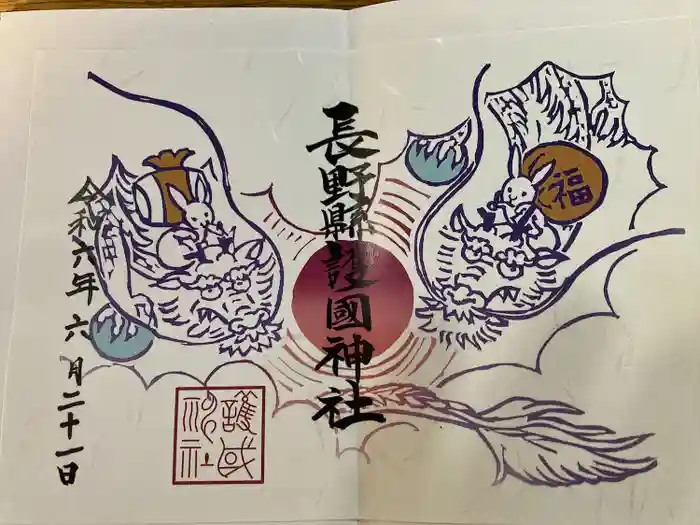 福
長野縣護國神社
令和六年六月二十一日
護国
神社